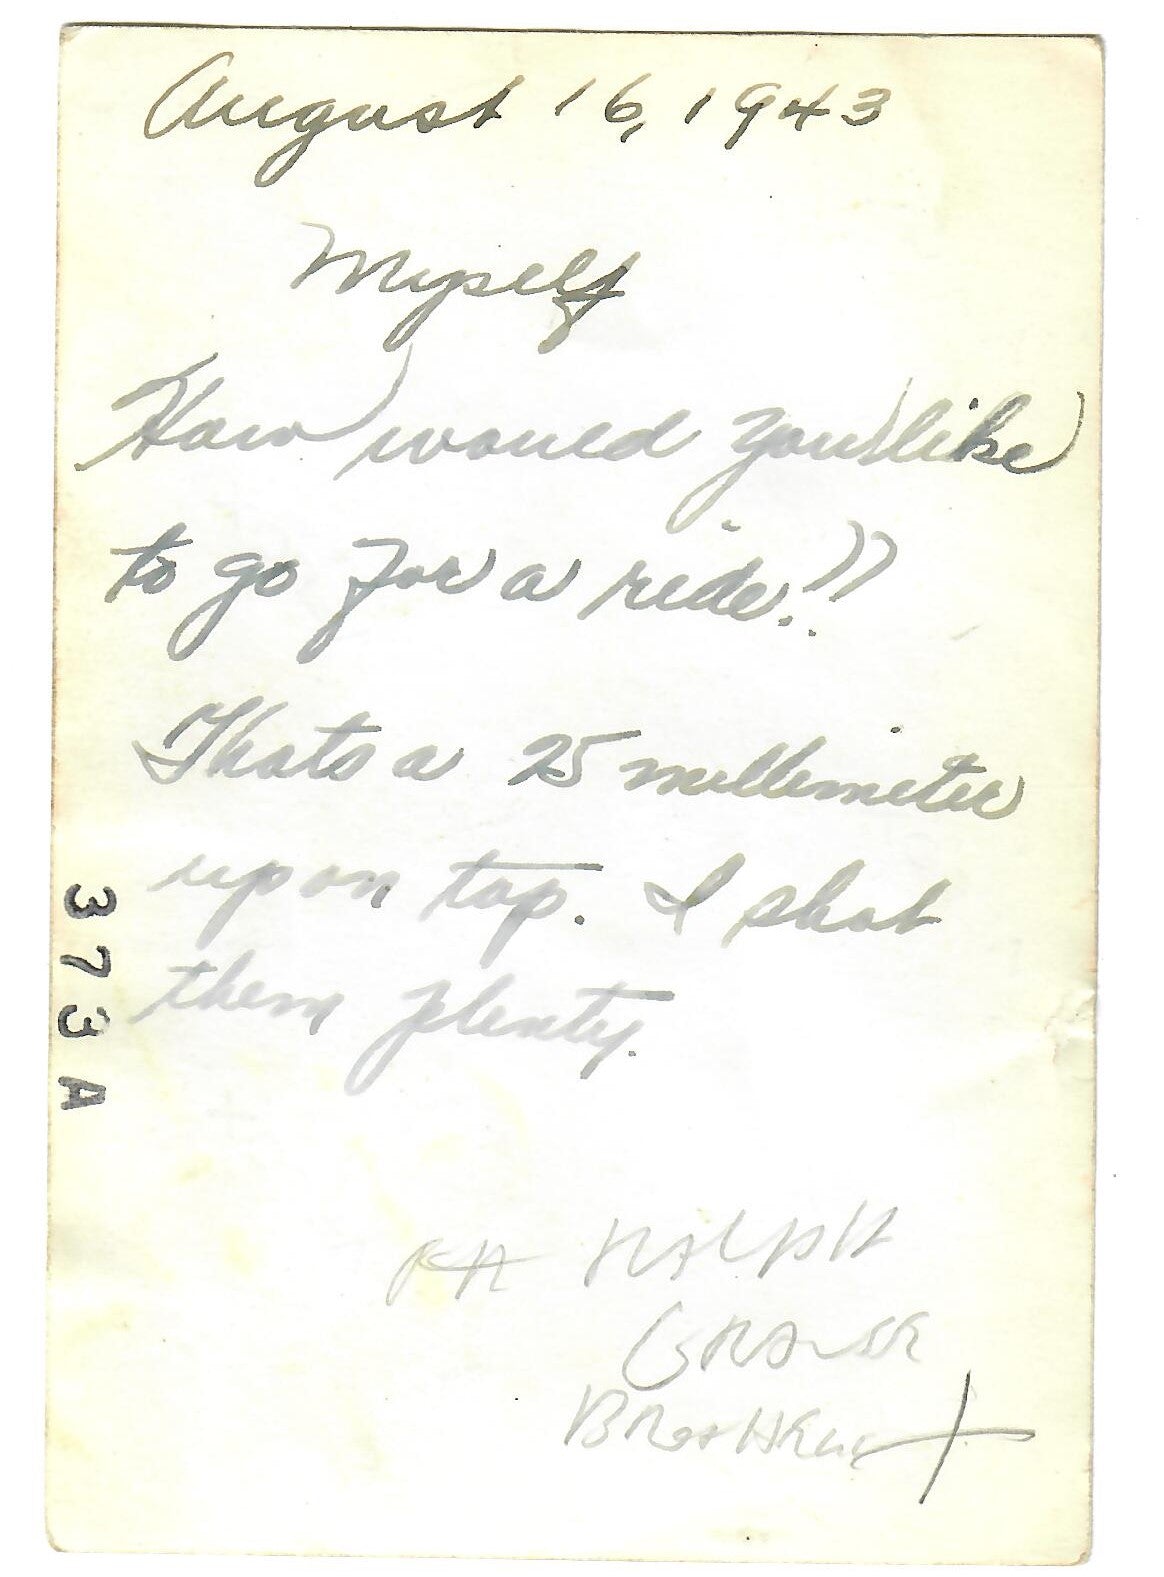 August 16, 1943
Myself
How would you like
to go for a ride!!
Thats a 25 millimeter
up on top. I shot
them plenty.
373A
RALPH